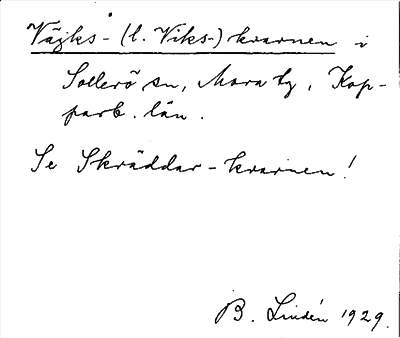 Väjks- (l. Viks-) kvarnen i
Sollerö sn, Mora tg, Kop-
parb. län.
Se Skräddar-kvarnen!
B. Lindén 1929.